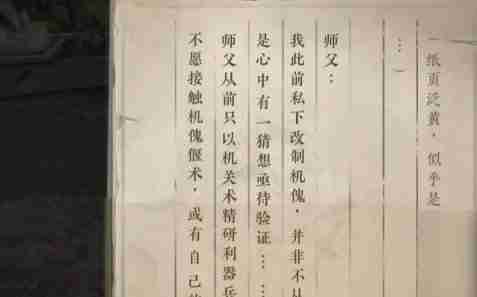 一纸页泛黄，似乎是
…
师父：
我此前私下改制机傀，并非不
是心中有一猜想亟待验证……
师父从前只以机关术精研利器兵
不愿接触机傀偃术，或有自己